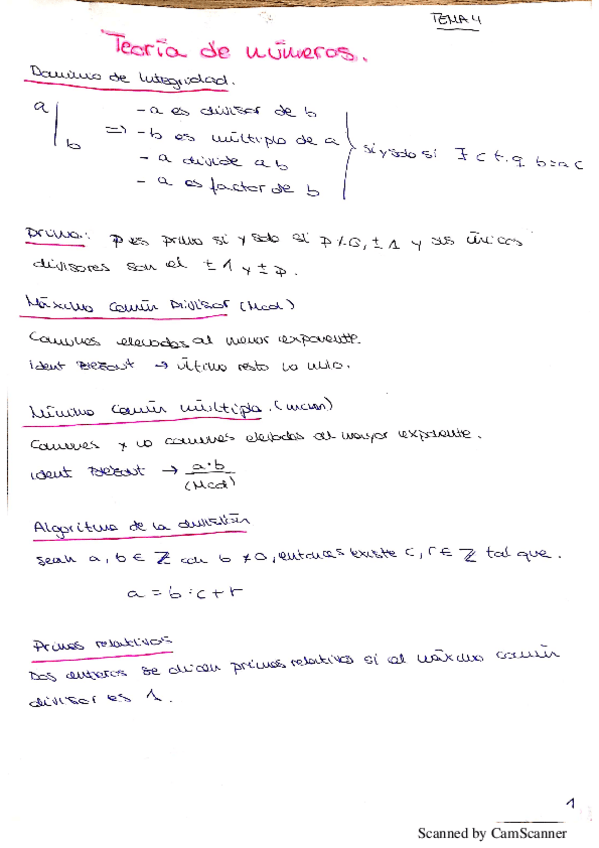 TEMA 4
Teoría de números.
Dominio de Integridad.
a | b ⇒
- a es divisor de b
- b es múltiplo de a
- a divide a b
- a es factor de b
si y solo si ∃ c t.q b=a c
primo: p es primo si y solo si p ≠ 0, ±1 y sus únicos
divisores son el ±1 y ±p.
Máximo Común Divisor (Mcd)
Comunes elevados al menor exponente.
ident Bézout → último resto no nulo.
Mínimo Común múltiplo. (mcm)
Comunes y no comunes elevados al mayor exponente.
ident Bézout → a·b
(Mcd)
Algoritmo de la división
sean a, b ∈ Z con b ≠ 0, entonces existe c, r ∈ Z tal que.
a = b·c+r
Primos relativos
Dos enteros se dicen primos relativos si el máximo común
divisor es 1.
1
Scanned by CamScanner